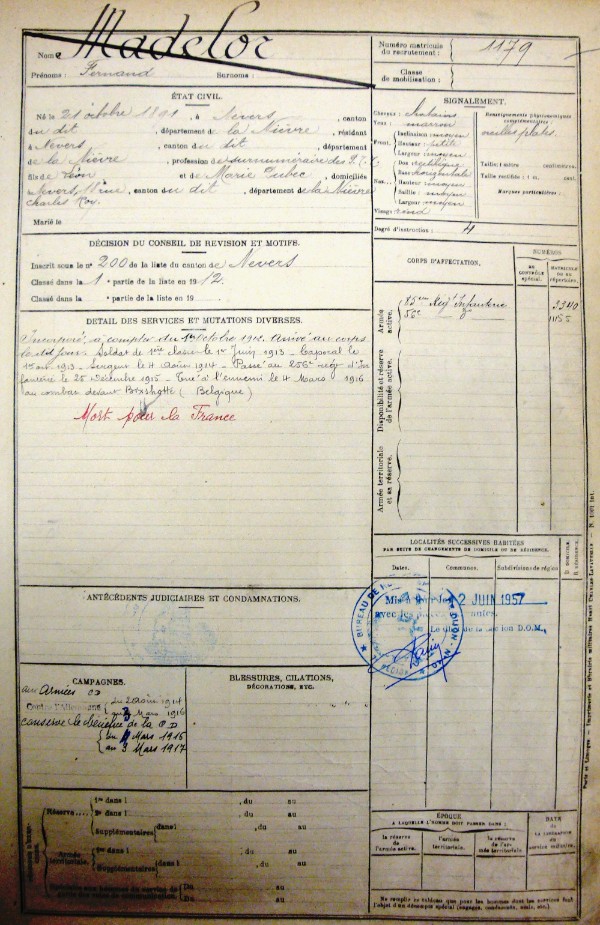 Nom : Madelor
Prénoms : Fernand Surnoms :
Numéro matricule du recrutement : 1179
Classe de mobilisation :
ÉTAT CIVIL.
Né le 21 octobre 1891, à Nevers, canton
du dit, département de la Nièvre, résidant
à Nevers, canton du dit, département
de la Nièvre, profession de surnuméraire des P.T.T.
fils de Léon et de Marie Dubec, domiciliés
Nevers, canton du dit, département de la Nièvre
Charles Roy.
Marié le
SIGNALEMENT.
Cheveux : chatains
Yeux : marron
Front. Inclinaison : moyen
Hauteur : petite
Largeur : moyen
Nez. Dos : rectiligne
Base : horizontale
Hauteur : moyen
Saillie : moyen
Largeur : moyen
Visage : rond
Renseignements physionomiques complémentaires :
oreilles plates.
Taille : 1 mètre centimètres.
Taille rectifiée : 1 m. cent.
Marques particulières :
Degré d'instruction : 4
DÉCISION DU CONSEIL DE REVISION ET MOTIFS.
Inscrit sous le n° 200 de la liste du canton de Nevers
Classé dans la 1 e partie de la liste en 1912.
Classé dans la e partie de la liste en 19
DETAIL DES SERVICES ET MUTATIONS DIVERSES.
Incorporé à compter du 1er octobre 1912. Arrivé au corps
le dit jour. Soldat de 1ère classe le 1er Juin 1913 - Caporal le
1913 - Sergent le 4 Août 1914 - Passé au 256e régt d'In
fanterie le 25 Décembre 1915 - Tué à l'ennemi le 4 Mars 1916
au combat devant (Belgique)
Mort pour la France
CORPS D'AFFECTATION.
NUMÉROS
AU CONTRÔLE SPÉCIAL.
MATRICULE OU AU RÉPERTOIRE.
Armée active.
Regt Infanterie
56e do 1155
Disponibilité et réserve de l'armée active.
Armée territoriale et sa réserve.
LOCALITÉS SUCCESSIVES HABITÉES
PAR SUITE DE CHANGEMENTS DE DOMICILE OU DE RÉSIDENCE.
Dates. Communes. Subdivisions de région D. DOMICILE. R. RÉSIDENCE.
Mis à jour le 2 JUIN 1957
D.O.M.
BUREAU DE DIJON
ANTÉCÉDENTS JUDICIAIRES ET CONDAMNATIONS.
CAMPAGNES.
aux Armées CD
Contre l'Allemagne du 2 Août 1914
au 3 Mars 1916
conserve le bénéfice de la CD
du 4 Mars 1916
au 3 Mars 1917
BLESSURES, CITATIONS,
DÉCORATIONS, ETC.
Réserve 1re dans l , du au
2e dans l , du au
Supplémentaires dans l , du au
Armée territoriale. dans l , du au
Supplémentaires dans l , du au
Du au
Du au
ÉPOQUE
À LAQUELLE L'HOMME DOIT PASSER DANS :
la réserve de l'armée active.
l'armée territoriale.
la réserve de l'armée territoriale
DATE DE LA LIBÉRATION DU SERVICE MILITAIRE.
Ne remplir ce tableau que pour les hommes dont les services font
l'objet d'un décompte spécial (engagés, condamnés, omis, etc.)